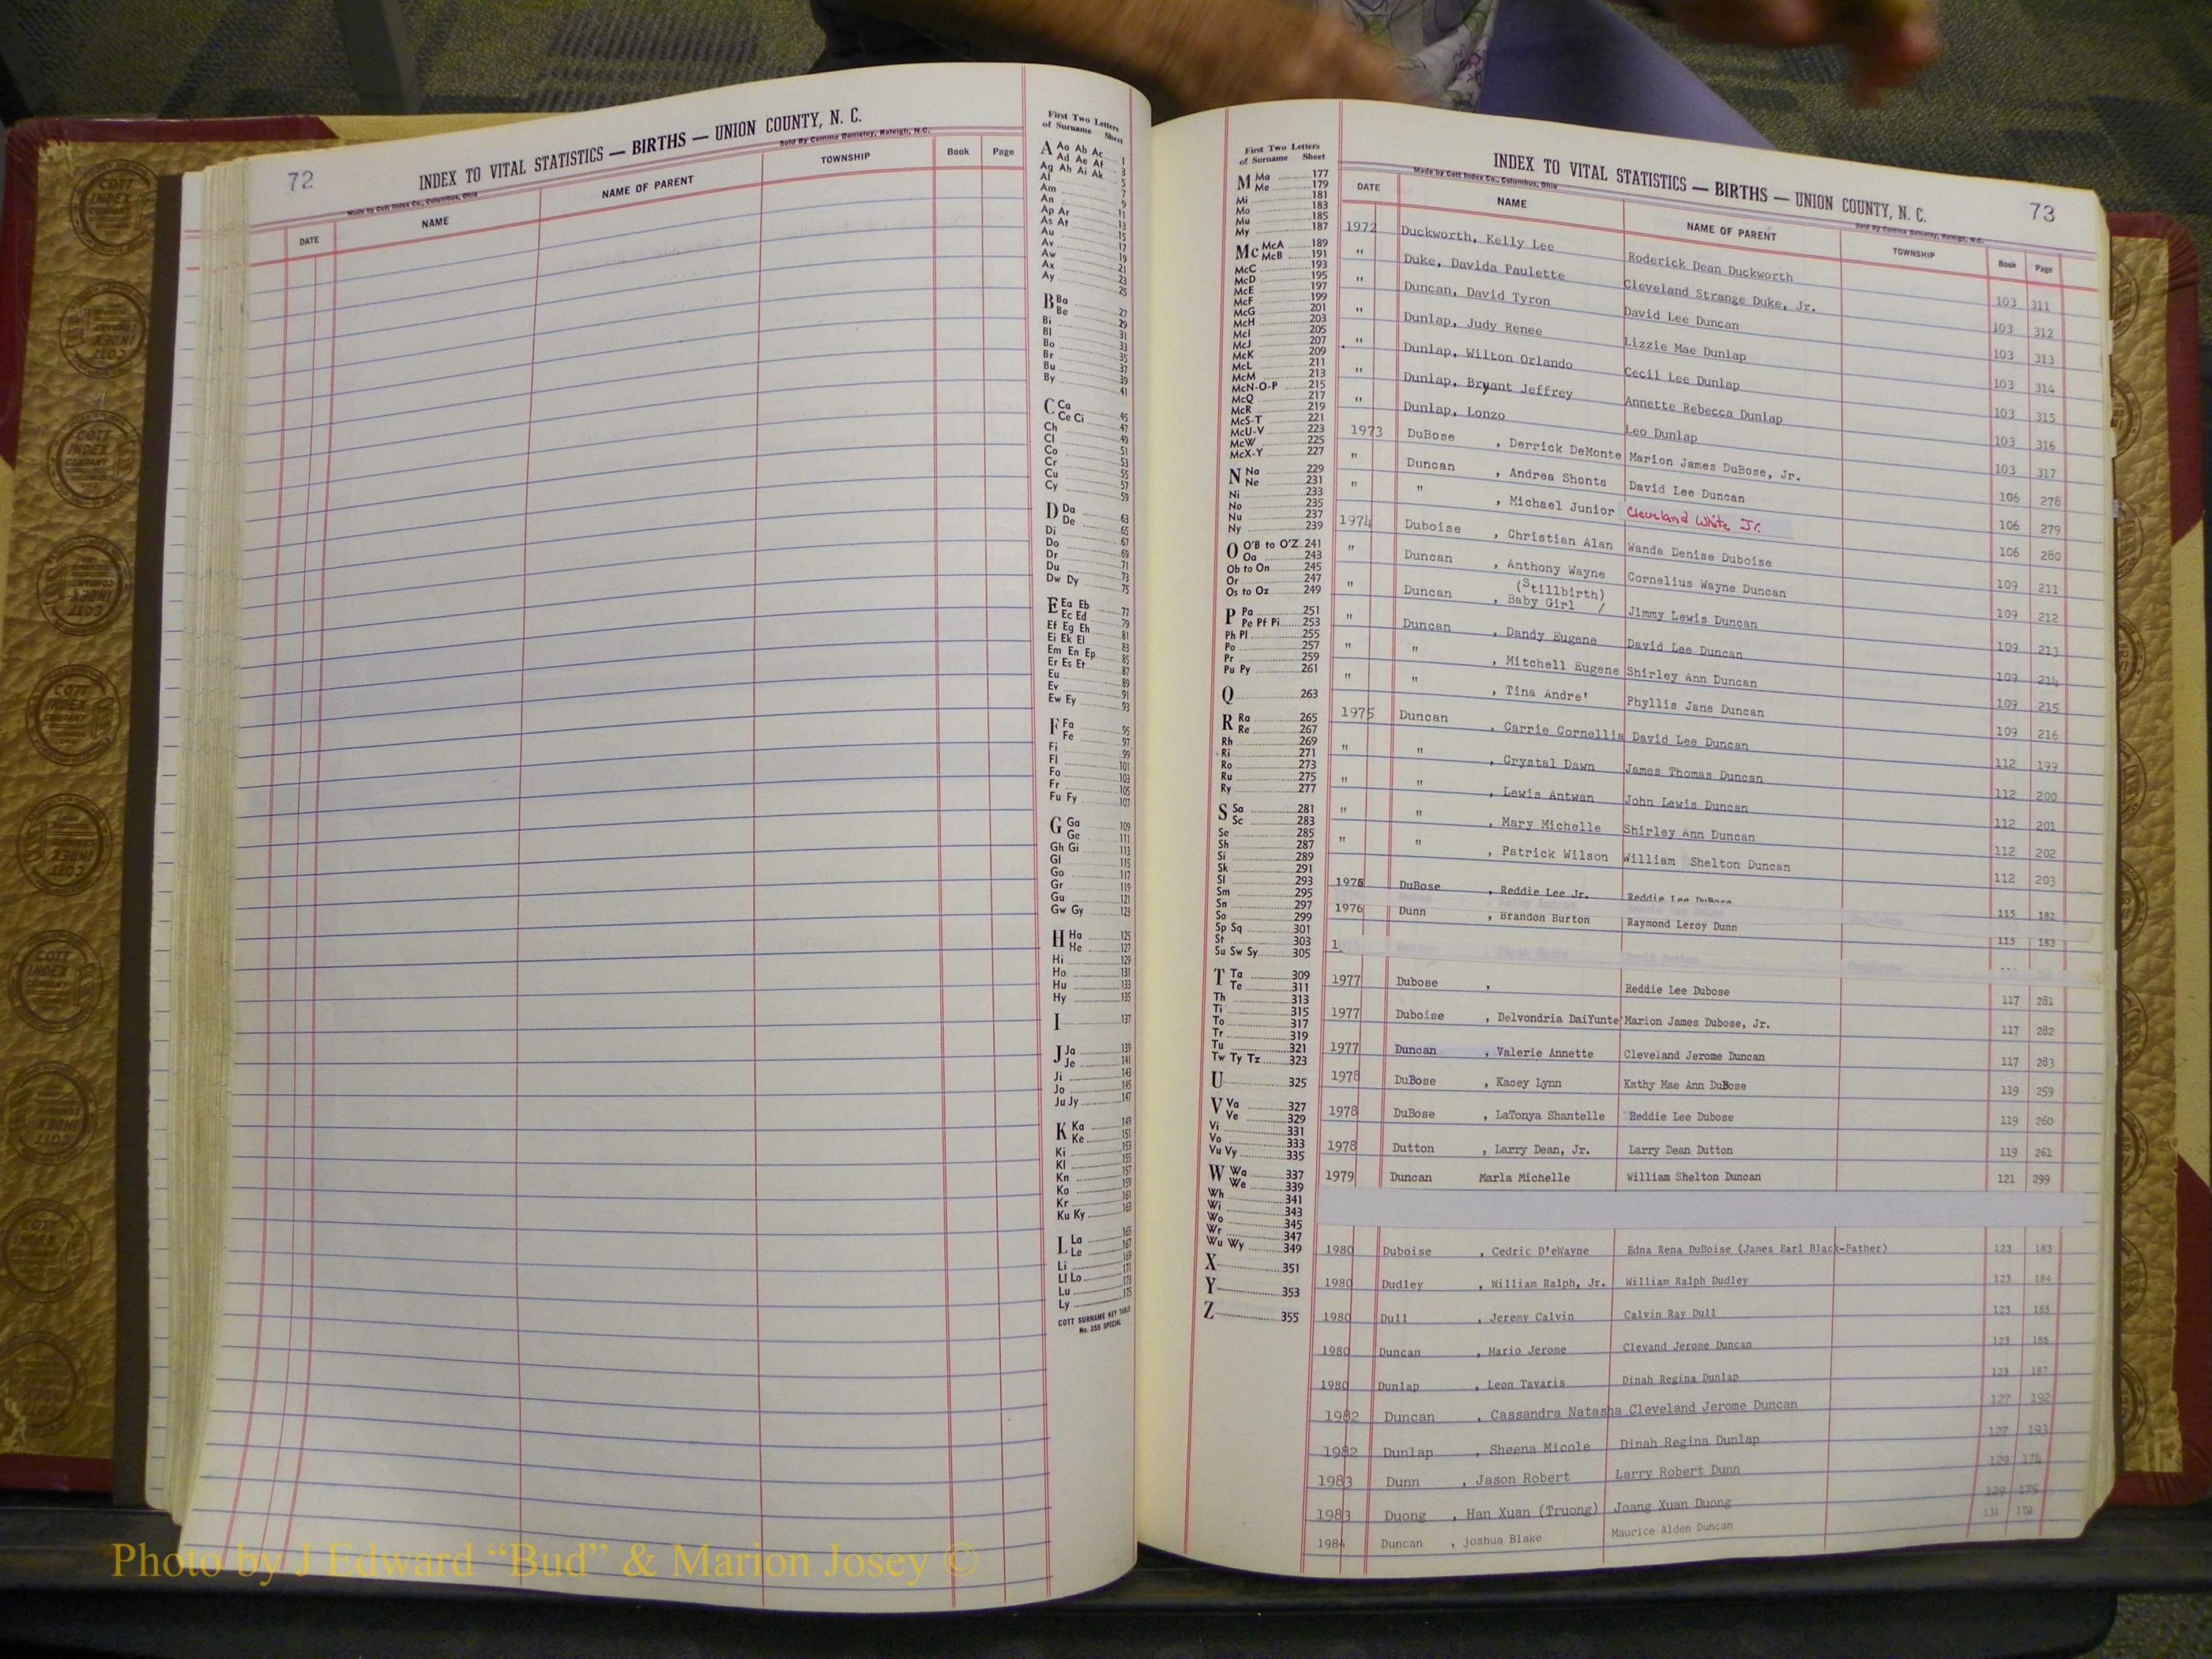 72
INDEX TO VITAL STATISTICS — BIRTHS — UNION COUNTY, N. C.
Made by Cott Index Co., Columbus, Ohio
Sold By Comma Danieley, Raleigh, N.C.
DATE NAME NAME OF PARENT TOWNSHIP Book Page
First Two Letters
of Surname Sheet
A Aa Ab Ac 1
Ad Ae Af 3
Ag Ah Ai Ak 5
Al 7
Am 9
An 11
Ap Ar 13
As At 15
Au 17
Av 19
Aw 21
Ax 23
Ay 25
B Ba 27
Be 29
Bi 31
Bl 33
Bo 35
Br 37
Bu 39
By 41
C Ca 45
Ce Ci 47
Ch 49
Cl 51
Co 53
Cr 55
Cu 57
Cy 59
D Da 63
De 65
Di 67
Do 69
Dr 71
Du 73
Dw Dy 75
E Ea Eb 77
Ec Ed 79
Ef Eg Eh 81
Ei Ek El 83
Em En Ep 85
Er Es Et 87
Eu 89
Ev 91
Ew Ey 93
F Fa 95
Fe 97
Fi 99
Fl 101
Fo 103
Fr 105
Fu Fy 107
G Ga 109
Ge 111
Gh Gi 113
Gl 115
Go 117
Gr 119
Gu 121
Gw Gy 123
H Ha 125
He 127
Hi 129
Ho 131
Hu 133
Hy 135
I 137
J Ja 139
Je 141
Ji 143
Jo 145
Ju Jy 147
K Ka 149
Ke 151
Ki 153
Kl 155
Kn 157
Ko 159
Kr 161
Ku Ky 163
L La 165
Le 167
Li 169
Ll Lo 171
Lu 173
Ly 175
COTT SURNAME KEY TABLE
No. 355 SPECIAL
First Two Letters
of Surname Sheet
M Ma 177
Me 179
Mi 181
Mo 183
Mu 185
My 187
Mc McA 189
McB 191
McC 193
McD 195
McE 197
McF 199
McG 201
McH 203
McI 205
McJ 207
McK 209
McL 211
McM 213
McN-O-P 215
McQ 217
McR 219
McS-T 221
McU-V 223
McW 225
McX-Y 227
N Na 229
Ne 231
Ni 233
No 235
Nu 237
Ny 239
O O'B to O'Z 241
Oa 243
Ob to On 245
Or 247
Os to Oz 249
P Pa 251
Pe Pf Pi 253
Ph Pl 255
Po 257
Pr 259
Pu Py 261
Q 263
R Ra 265
Re 267
Rh 269
Ri 271
Ro 273
Ru 275
Ry 277
S Sa 281
Sc 283
Se 285
Sh 287
Si 289
Sk 291
Sl 293
Sm 295
Sn 297
So 299
Sp Sq 301
St 303
Su Sw Sy 305
T Ta 309
Te 311
Th 313
Ti 315
To 317
Tr 319
Tu 321
Tw Ty Tz 323
U 325
V Va 327
Ve 329
Vi 331
Vo 333
Vu Vy 335
W Wa 337
We 339
Wh 341
Wi 343
Wo 345
Wr 347
Wu Wy 349
X 351
Y 353
Z 355
INDEX TO VITAL STATISTICS — BIRTHS — UNION COUNTY, N. C.
73
Made by Cott Index Co., Columbus, Ohio
Sold By Comma Danieley, Raleigh, N.C.
DATE NAME NAME OF PARENT TOWNSHIP Book Page
1972 Duckworth, Kelly Lee Roderick Dean Duckworth 103 311
" Duke, Davida Paulette Cleveland Strange Duke, Jr. 103 312
" Duncan, David Tyron David Lee Duncan 103 313
" Dunlap, Judy Renee Lizzie Mae Dunlap 103 314
" Dunlap, Wilton Orlando Cecil Lee Dunlap 103 315
" Dunlap, Bryant Jeffrey Annette Rebecca Dunlap 103 316
" Dunlap, Lonzo Leo Dunlap 103 317
1973 DuBose , Derrick DeMonte Marion James DuBose, Jr. 106 278
" Duncan , Andrea Shonta David Lee Duncan 106 279
" " , Michael Junior Cleveland White Jr. 106 280
1974 Duboise , Christian Alan Wanda Denise Duboise 109 211
" Duncan , Anthony Wayne Cornelius Wayne Duncan 109 212
" Duncan (Stillbirth) , Baby Girl / Jimmy Lewis Duncan 109 213
" Duncan , Dandy Eugene David Lee Duncan 109 214
" " , Mitchell Eugene Shirley Ann Duncan 109 215
" " , Tina Andre' Phyllis Jane Duncan 109 216
1975 Duncan , Carrie Cornellia David Lee Duncan 112 199
" " , Crystal Dawn James Thomas Duncan 112 200
" " , Lewis Antwan John Lewis Duncan 112 201
" " , Mary Michelle Shirley Ann Duncan 112 202
" " , Patrick Wilson William Shelton Duncan 112 203
1976 DuBose , Reddie Lee Jr. Reddie Lee DuBose 115 182
1976 Dunn , Brandon Burton Raymond Leroy Dunn 115 183
1977 Dubose , Reddie Lee Dubose 117 281
1977 Duboise , Delvondria DaiYunte' Marion James Dubose, Jr. 117 282
1977 Duncan , Valerie Annette Cleveland Jerome Duncan 117 283
1978 DuBose , Kacey Lynn Kathy Mae Ann DuBose 119 259
1978 DuBose , LaTonya Shantelle Reddie Lee Dubose 119 260
1978 Dutton , Larry Dean, Jr. Larry Dean Dutton 119 261
1979 Duncan Marla Michelle William Shelton Duncan 121 299
1980 Duboise , Cedric D'eWayne Edna Rena DuBoise (James Earl Black-Father) 123 183
1980 Dudley , William Ralph, Jr. William Ralph Dudley 123 184
1980 Dull , Jeremy Calvin Calvin Ray Dull 123 185
1980 Duncan , Mario Jerome Clevand Jerome Duncan 123 186
1980 Dunlap , Leon Tavaris Dinah Regina Dunlap 123 187
1982 Duncan , Cassandra Natasha Cleveland Jerome Duncan 127 192
1982 Dunlap , Sheena Micole Dinah Regina Dunlap 127 193
1983 Dunn , Jason Robert Larry Robert Dunn 129 174
1983 Duong , Han Xuan (Truong) Joang Xuan Duong 129 175
1984 Duncan , joshua Blake Maurice Alden Duncan 131
Photo by J Edward “Bud” & Marion Josey ©